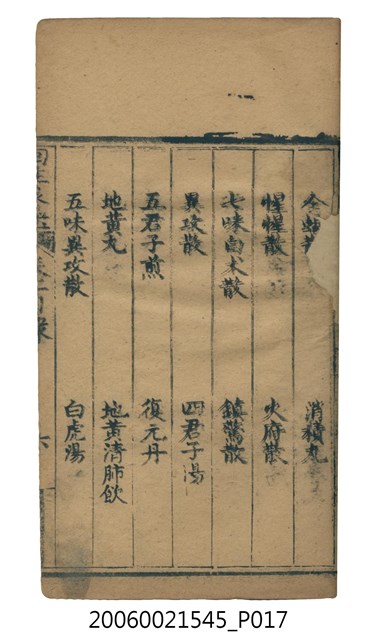 消積丸
惺惺散 火府散
七味白朮散 鎮驚散
異攻散 四君子湯
五君子煎 復元丹
地黃丸 地黃清肺飲
五味異攻散 白虎湯
卷二目錄 六
20060021545_P017